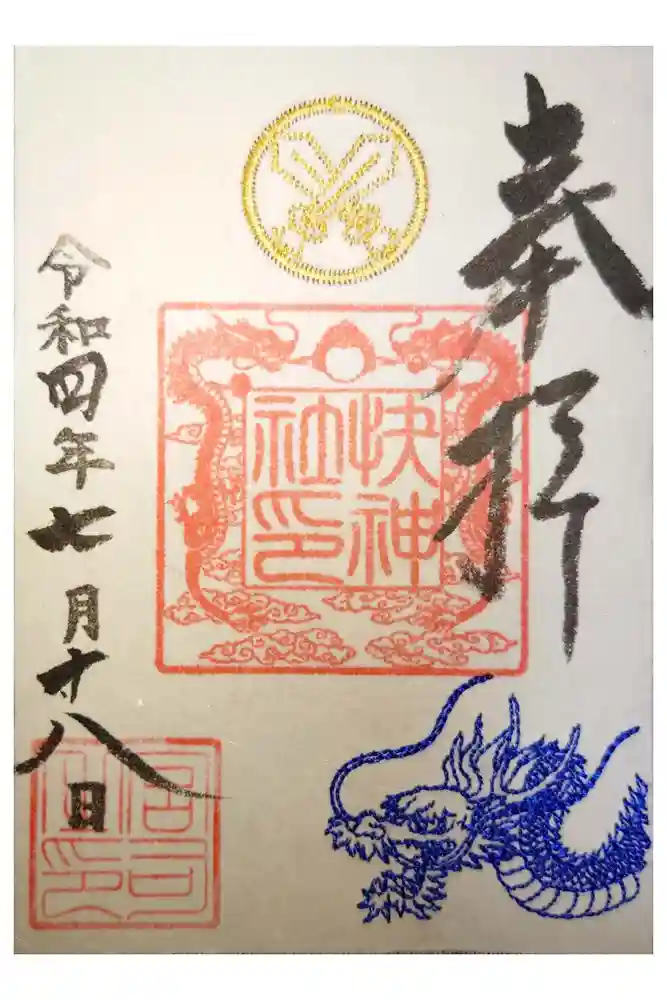 奉拝
快神社印
令和四年七月十八日
宮司之印